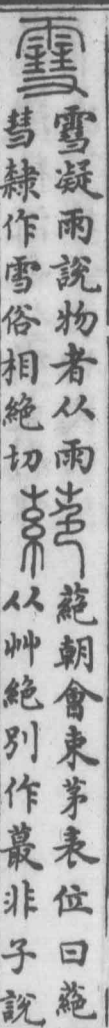 䨮
䨮凝雨說物者从雨
彗隸作雪俗相絶切
蕝
蕝朝會束茅表位曰蕝
从艸絶別作蕞非子說